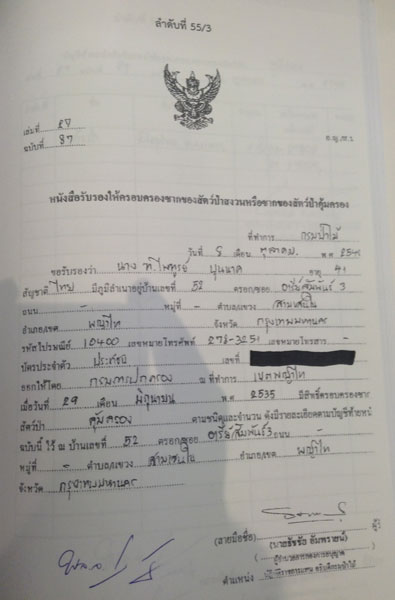 ลำดับที่ 55/3
เล่มที่ 27
ฉบับที่ 87
หนังสือรับรองให้ครอบครองซากของสัตว์ป่าสงวนหรือซากของสัตว์ป่าคุ้มครอง
ที่ทำการ กรมป่าไม้
วันที่ 8 เดือน ตุลาคม พ.ศ.
ขอรับรองว่า นาง บุนนาค อายุ 41
สัญชาติ ไทย มีภูมิลำเนาอยู่บ้านเลขที่ 52 ตรอก/ซอย อารีย์สัมพันธ์ 3
ถนน - หมู่ที่ - ตำบล/แขวง สามเสนใน
อำเภอ/เขต พญาไท จังหวัด กรุงเทพมหานคร
รหัสไปรษณีย์ 10400 เลขหมายโทรศัพท์ 278-3251 เลขหมายโทรสาร -
บัตรประจำตัว เลขที่
ออกให้โดย กรมการปกครอง ณ ที่ทำการ เขตพญาไท
เมื่อวันที่ 29 เดือน มิถุนายน พ.ศ 2535 มีสิทธิ์ครอบครองซาก
สัตว์ป่า คุ้มครอง ตามชนิดและจำนวน ดังมีรายละเอียดตามบัญชีท้ายหนังสือ
ฉบับนี้ ไว้ ณ บ้านเลขที่ 52 ตรอก/ซอย อารีย์สัมพันธ์ 3 ถนน
หมู่ที่ - ตำบล/แขวง สามเสนใน อำเภอ/เขต พญาไท
จังหวัด กรุงเทพมหานคร
(ลายมือชื่อ)
ตำแหน่ง